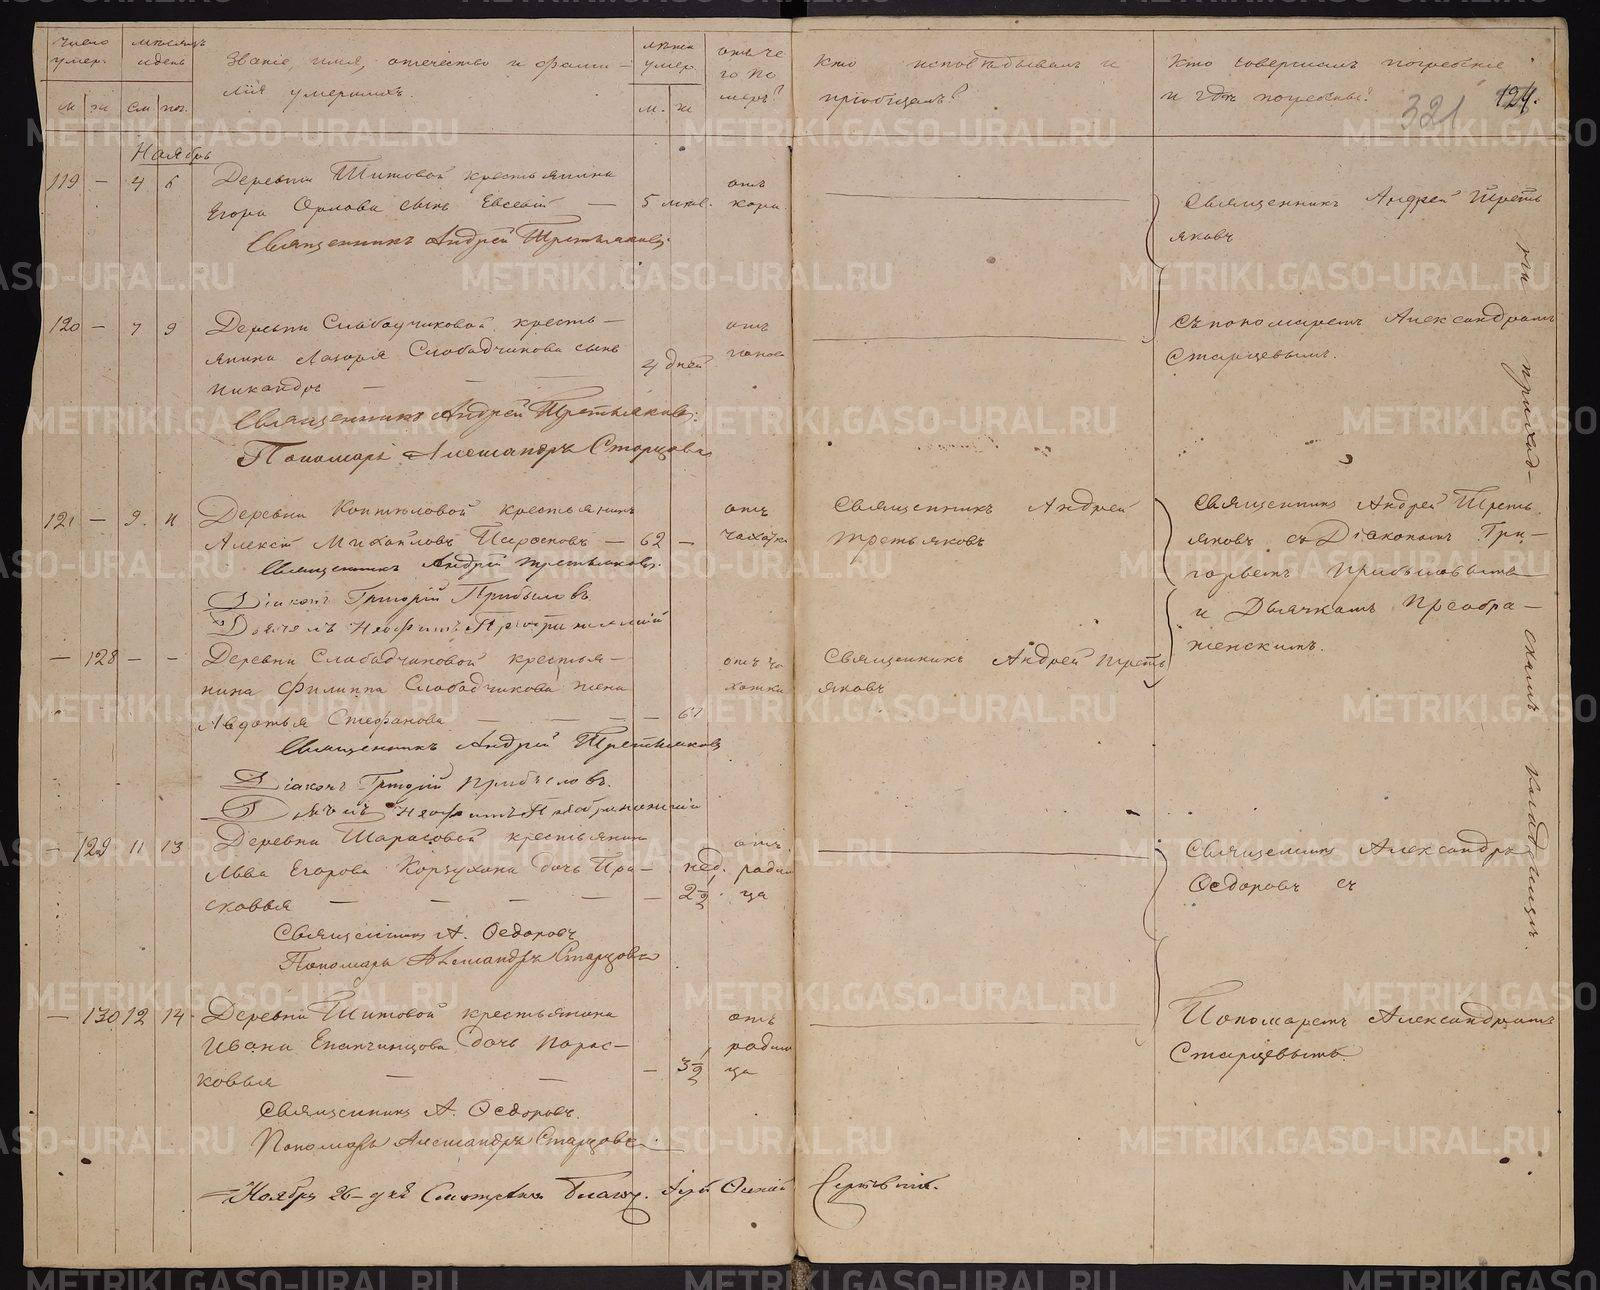 Число умер.
мѣсяцъ и день
Званіе, имя, отчество и фами-
лія умершихъ.
лѣта умер.
отъ че
го по
меръ?
Кто исповѣдывалъ и
пріобщалъ?
Кто совершалъ погребеніе
и гдѣ погребены?
321 124.
м ж см пог. м. ж
Ноябрь
119 — 4 6 Деревни Титовой крестьянина отъ
Егора Орлова сынъ Евсевій — 5 мѣс. кори.
Священникъ Андрей Третьяковъ.
Священникъ Андрей Треть
яковъ
120 — 7 9 Деревни Слабодчиковой кресть— отъ
янина Лазаря Слабодчикова сынъ 4 дней
Никандръ — — —
Священникъ Андрей Третьяковъ.
Пономарь Александръ Старцовъ
съ пономаремъ Александромъ
Старцевымъ.
121 — 9. 11 Деревни Коптяловой крестьянинъ отъ
Алексѣй Михайловъ — 62 — чахотки
Священникъ Андрей Третьяковъ.
Діаконъ Григорій Прибыловъ
Дьячекъ Неофитъ Преображенскій
Священникъ Андрей
Третьяковъ
Священникъ Андрей Треть
яковъ съ Діакономъ Гри-
горьемъ Прибыловымъ
и Дьячкомъ Преобра—
женскимъ.
— 128 — — Деревни Слабодчиковой крестья— отъ ча
нина Филиппа Слабодчикова жена хотки
Авдотья Стефанова — — — — 67
Священникъ Андрей Третьяковъ
Діаконъ Григорій Прибыловъ.
Дьячекъ Неофитъ Преображенскій
Священникъ Андрей Треть
яковъ
— 129 11 13 Деревни Шарасовой крестьянина отъ
Льва Егорова Корзухина дочь Пра— нед. родим
сковья — — — — — 2 1/2. ца
Священникъ А. Ѳедоровъ
Пономарь Александръ Старцовъ
Священникъ Александръ
Ѳедоровъ съ
— 130 12 14 Деревни Титовой крестьянина отъ
Ивана Епанчинцова дочь Парас— родим
ковья — — — 3 1/2 ца
Священникъ А. Ѳедоровъ.
Пономарь Александръ Старцовъ.
Пономаремъ Александромъ
Старцевымъ
на приход-
скомъ кладбищѣ.
Ноября 26-дня
METRIKI.GASO-URAL.RU